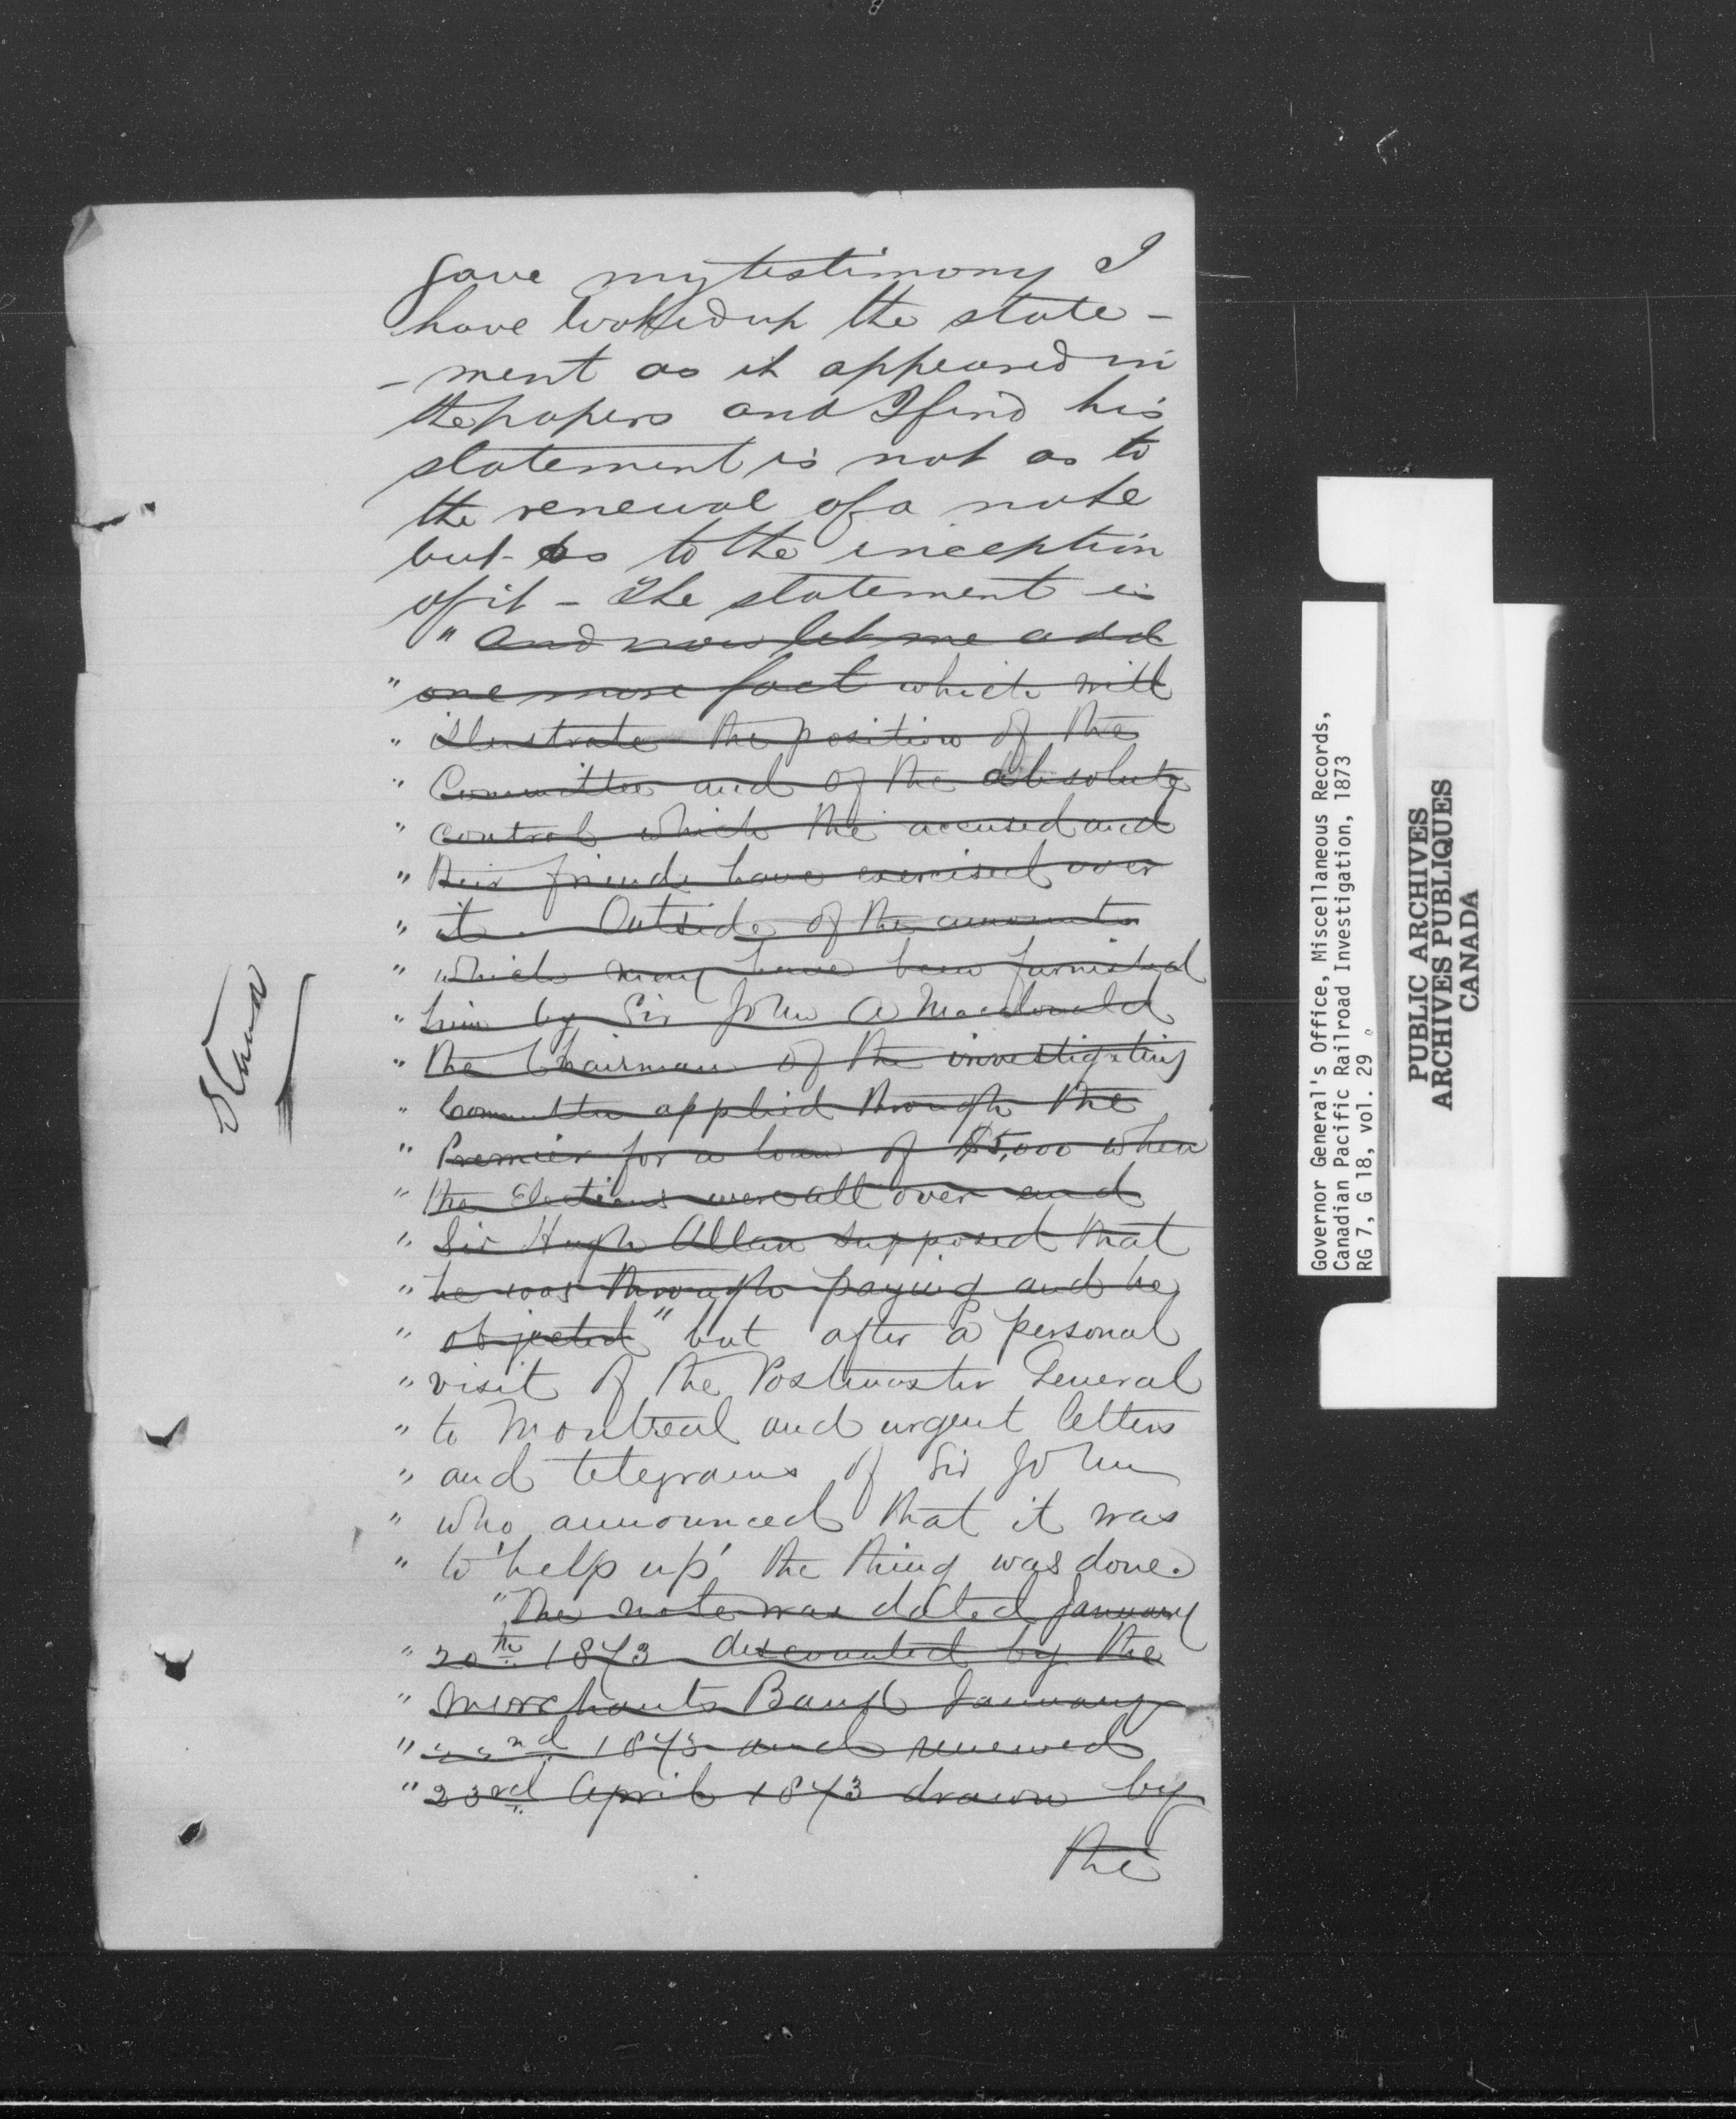 gave my testimony I
have looked up the state-
-ment as it appeared in
the papers and I find his
statement is not as to
the renewal of a note
but as to the inception
of it - The statement is
" And now let me add
" one more fact which will
" illustrate the position of the
" Committee and of the absolute
" control which the accused and
" their friends have exercised over
" it. Outside of the amounts
" which may have been furnished
" him by Sir John A Macdonald
" the Chairman of the investigating
" Committee applied through the
" Premier for a loan of $5,000 when
" the Elections were all over and
" Sir Hugh Allan supposed that
" he was through paying and he
" objected" but after a personal
" visit of the Postmaster General
" to Montreal and urgent letters
" and telegrams of Sir John
" who announced that it was
" to 'help up' the thing was done.
" The note was dated January
" 20th 1873 discounted by the
" Merchants Bank January
" 22nd 1873 and renewed
" 23rd April 1873 drawn by
the
Governor General's Office, Miscellaneous Records,
Canadian Pacific Railroad Investigation, 1873
RG 7, G 18, vol. 29
PUBLIC ARCHIVES
ARCHIVES PUBLIQUES
CANADA